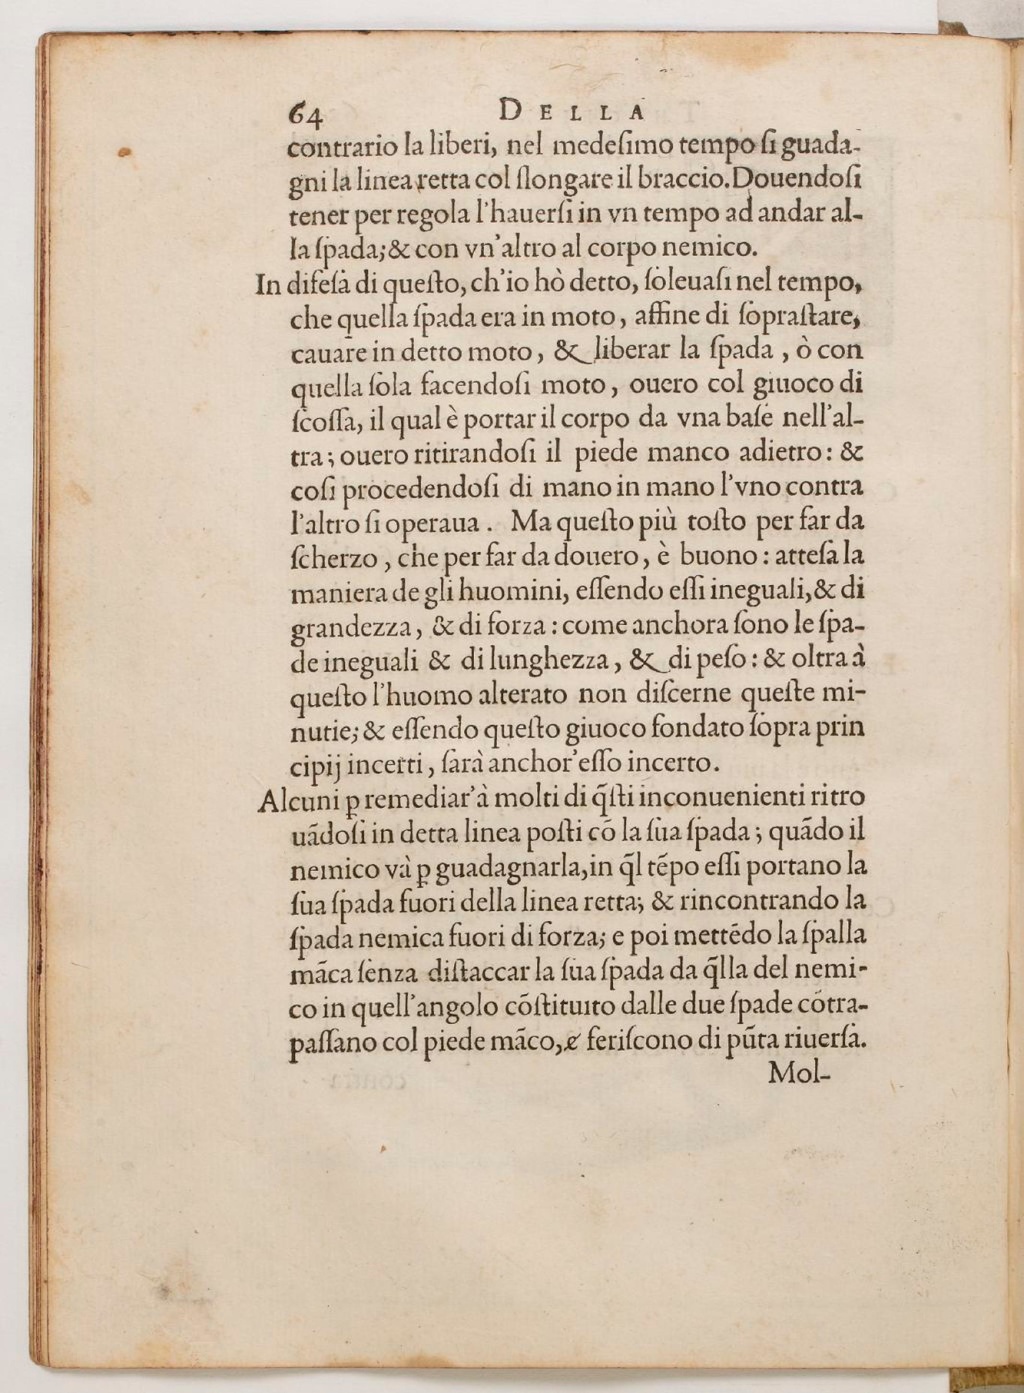 64 DELLA
contrario la liberi, nel medeſimo tempo ſi guada-
gni la linea retta col ſlongare il braccio. Douendoſi
tener per regola l'hauerſi in vn tempo ad andar al-
la ſpada; & con vn'altro al corpo nemico.
In difeſa di queſto, ch'io hò detto, ſoleuaſi nel tempo,
che quella ſpada era in moto, affine di ſopraſtare,
cauare in detto moto, & liberar la ſpada, ò con
quella ſola facendoſi moto, ouero col giuoco di
ſcoſſa, il qual è portar il corpo da vna baſe nell'al-
tra; ouero ritirandoſi il piede manco adietro: &
coſi procedendoſi di mano in mano l'vno contra
l'altro ſi operaua. Ma queſto più toſto per far da
ſcherzo, che per far da douero, è buono: atteſa la
maniera de gli huomini, eſſendo eſſi ineguali, & di
grandezza, & di forza: come anchora ſono le ſpa-
de ineguali & di lunghezza, & di peſo: & oltra à
queſto l'huomo alterato non diſcerne queſte mi-
nutie; & eſſendo queſto giuoco fondato ſopra prin
cipij incerti, ſarà anchor'eſſo incerto.
Alcuni ꝑ remediar'à molti di q̃ſti inconuenienti ritro
uãdoſi in detta linea poſti cõ la ſua ſpada; quãdo il
nemico và ꝑ guadagnarla, in q̃l tẽpo eſſi portano la
ſua ſpada fuori della linea retta; & rincontrando la
ſpada nemica fuori di forza; e poi mettẽdo la ſpalla
mãca ſenza diſtaccar la ſua ſpada da q̃lla del nemi-
co in quell'angolo cõſtituito dalle due ſpade cõtra-
paſſano col piede mãco, & feriſcono di pũta riuerſa.
Mol-